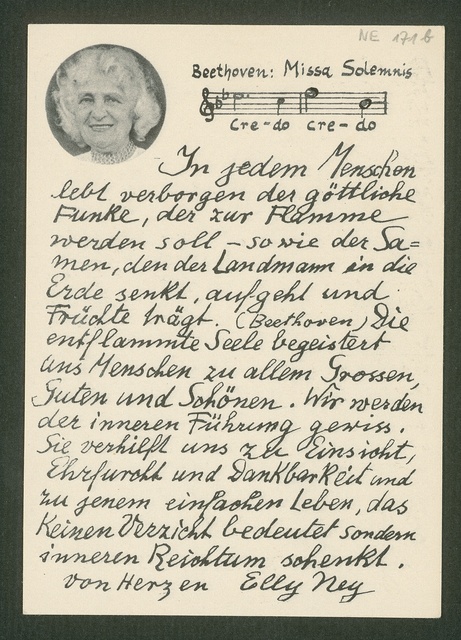 NE 171 b
Beethoven: Missa Solemnis
Cre-do cre-do
In jedem Menschen
lebt verborgen der göttliche
Funke, der zur Flamme
werden soll – sowie der Sa=
men, den der Landmann in die
Erde senkt, aufgeht und
Früchte trägt. (Beethoven) Die
entflammte Seele begeistert
uns Menschen zu allem Grossen,
Guten und Schönen. Wir werden
der inneren Führung gewiss.
Sie verhilft uns zu Einsicht,
Ehrfurcht und Dankbarkeit und
zu jenem einfachen Leben, das
keinen Verzicht bedeutet sondern
inneren Reichtum schenkt.
von Herzen Elly Ney